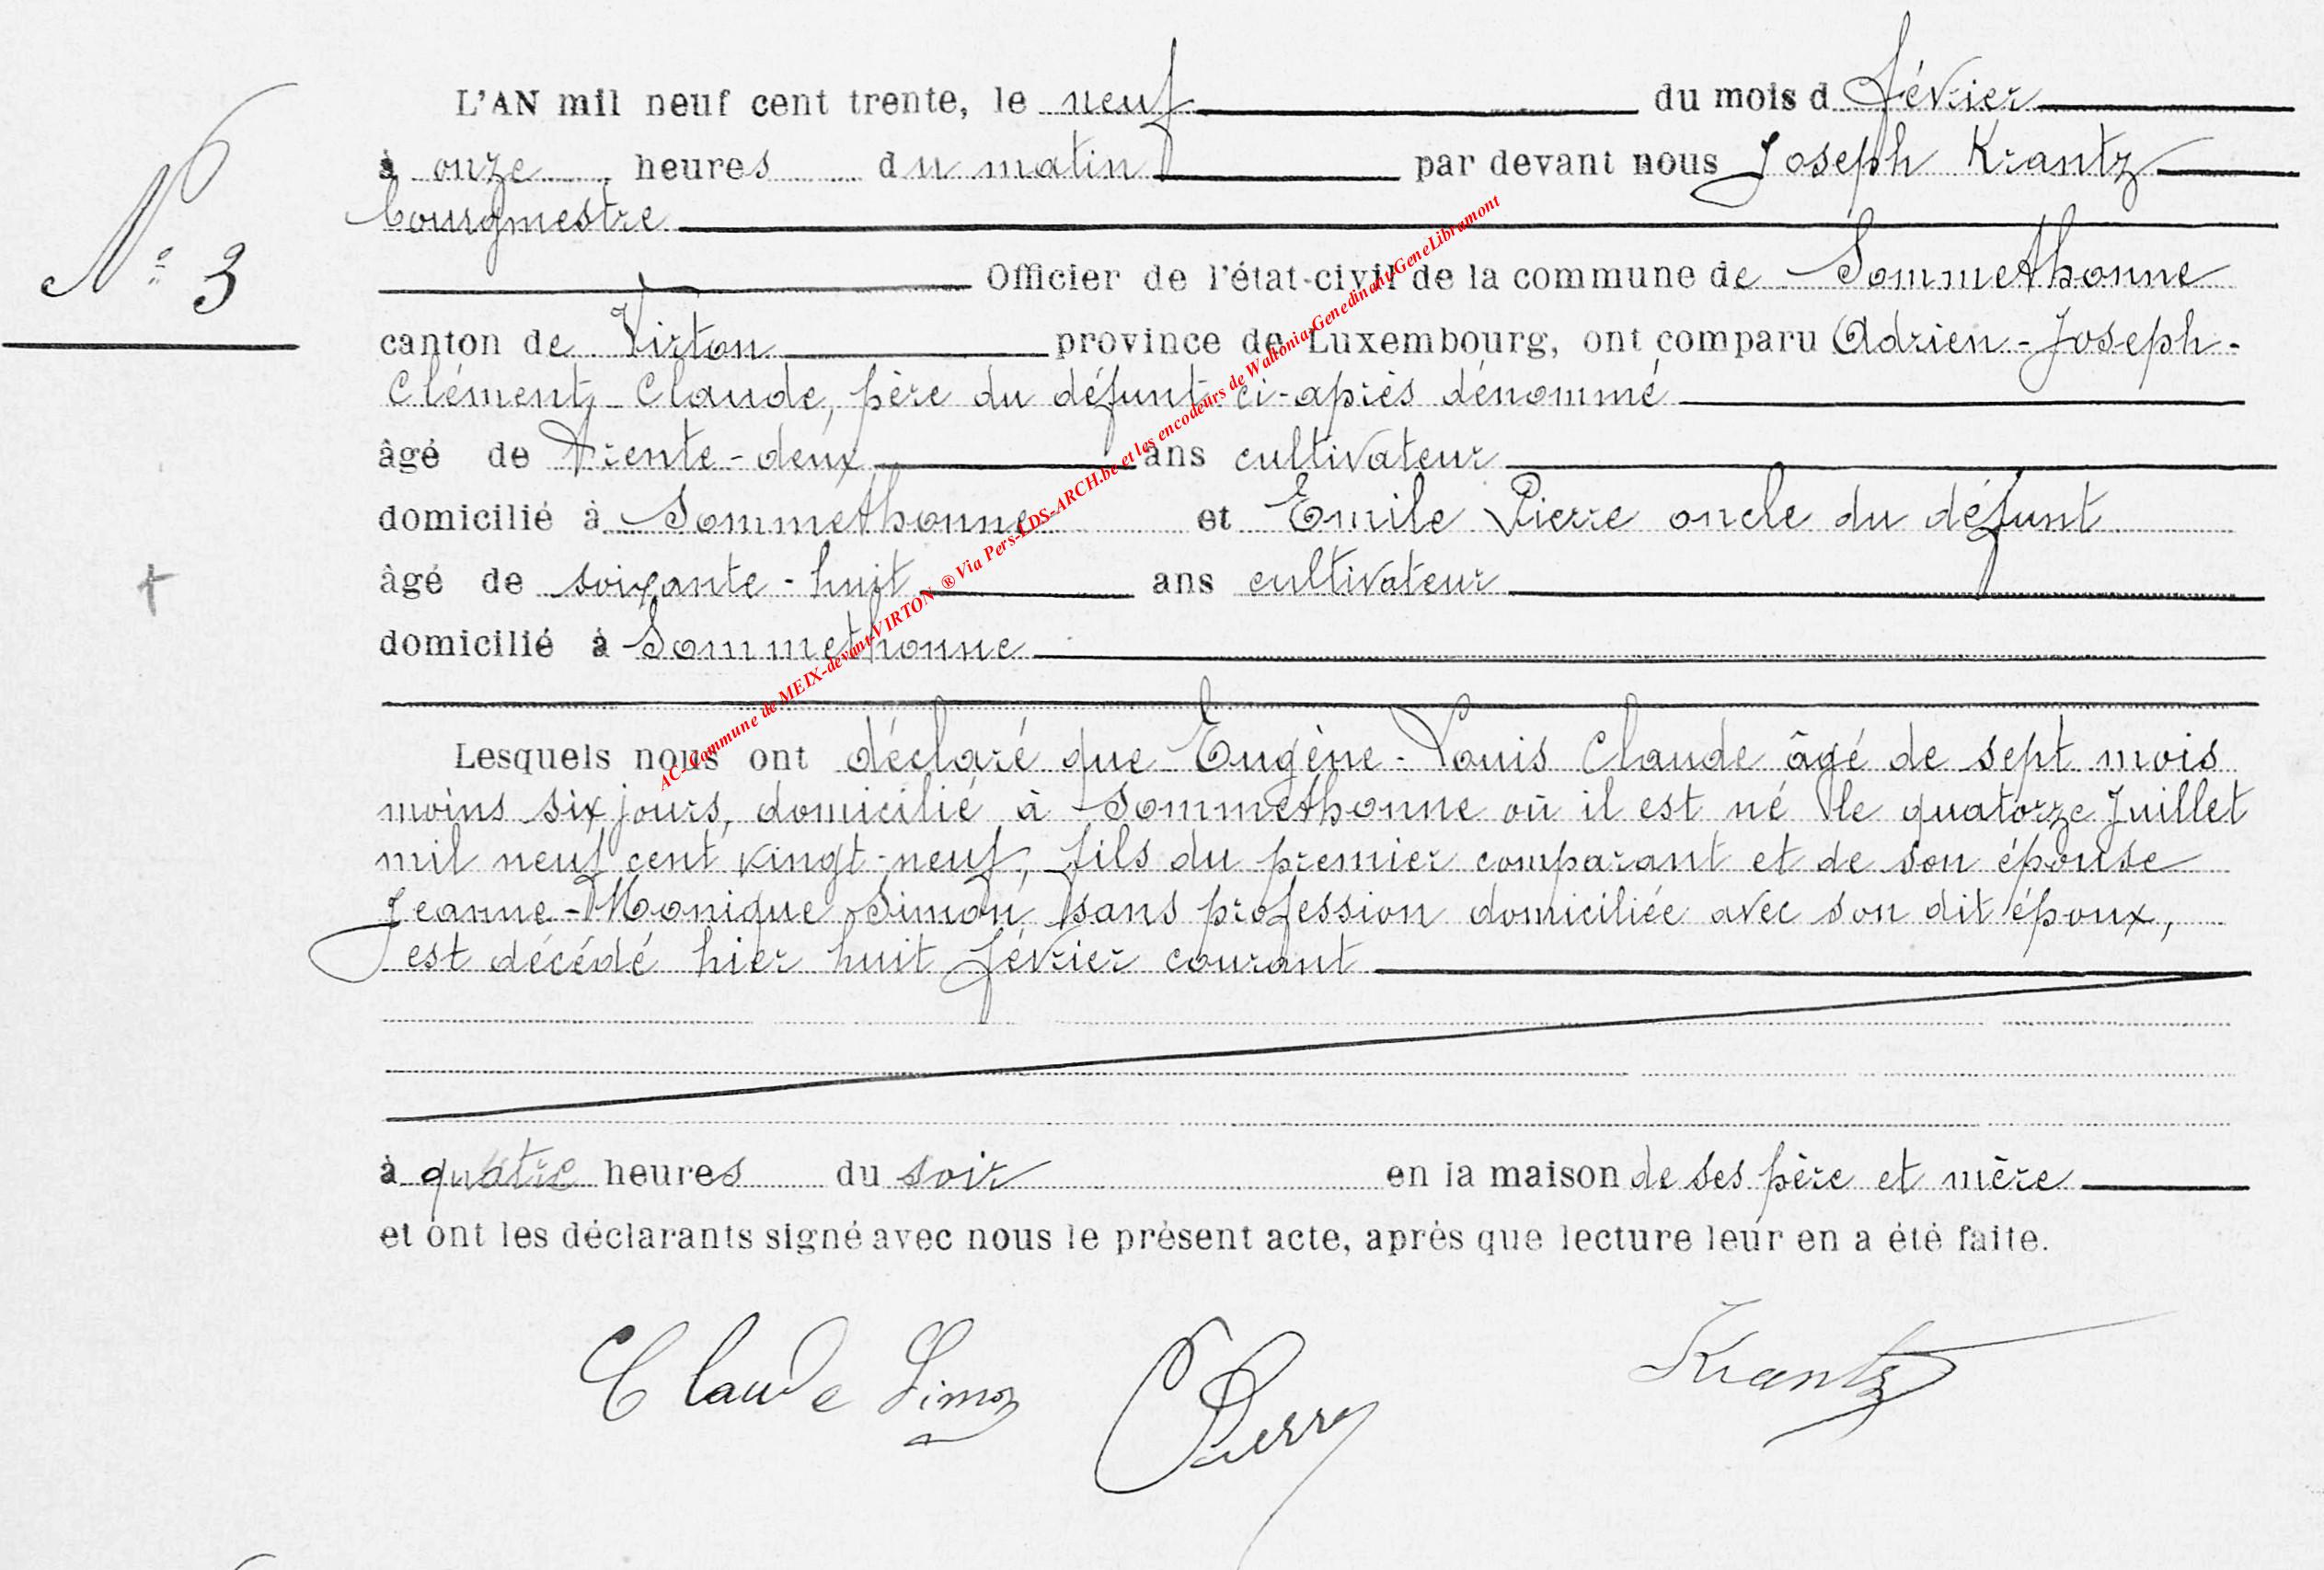 L'AN mil neuf cent trente, le neuf du mois d février
à onze heures du matin par devant nous Joseph Krantz
bourgmestre
N° 3
Officier de l'état-civil de la commune de Sommethonne
canton de Virton province de Luxembourg, ont comparu Adrien-Joseph-
Clément Claude, père du défunt ci-après dénommé
âgé de trente-deux ans cultivateur
domicilié à Sommethonne et Emile Pierre oncle du défunt
âgé de soixante-huit ans cultivateur
domicilié à Sommethonne
Lesquels nous ont déclaré que Eugène-Louis Claude âgé de sept mois
moins six jours, domicilié à Sommethonne où il est né le quatorze Juillet
mil neuf cent vingt-neuf, fils du premier comparant et de son épouse
Jeanne-Monique Simon, sans profession domiciliée avec son dit époux,
est décédé hier huit février courant
à quatre heures du soir en la maison de ses père et mère
et ont les déclarants signé avec nous le présent acte, après que lecture leur en a été faite.
Claude Simon Pierre Krantz
AC-Commune de MEIX-devant-VIRTON ® Via Pers-LDS-ARCH.be et les encodeurs de Waltonia-Genedinant-GeneLibramont